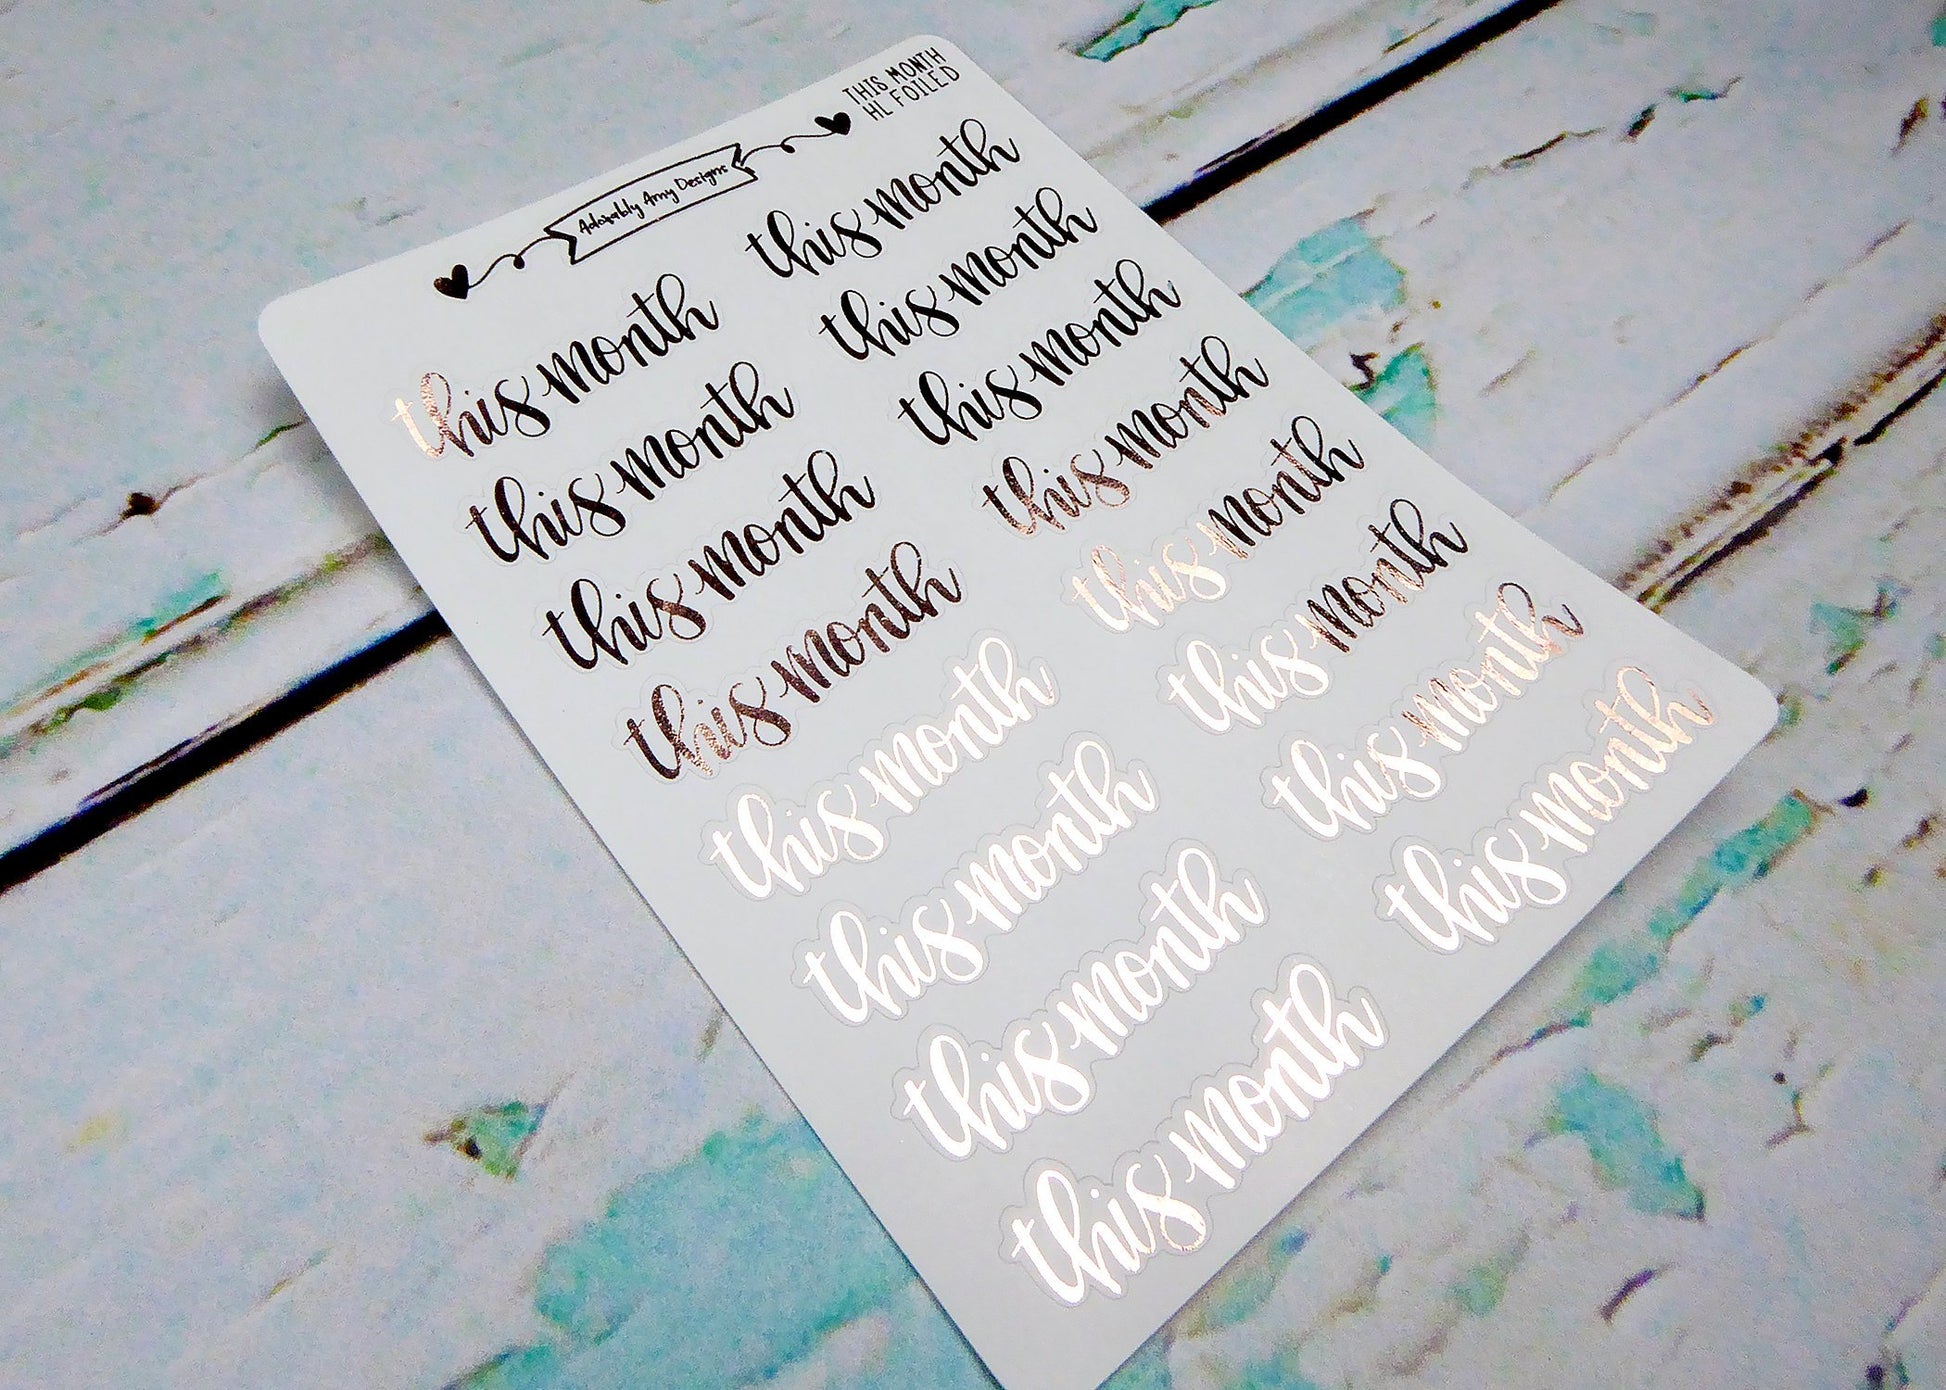 THIS MONTH
HL FOILED
Adorably Amy Designs
this month this month
this month this month
this month this month
this month this month
this month this month
this month this month
this month this month
this month this month